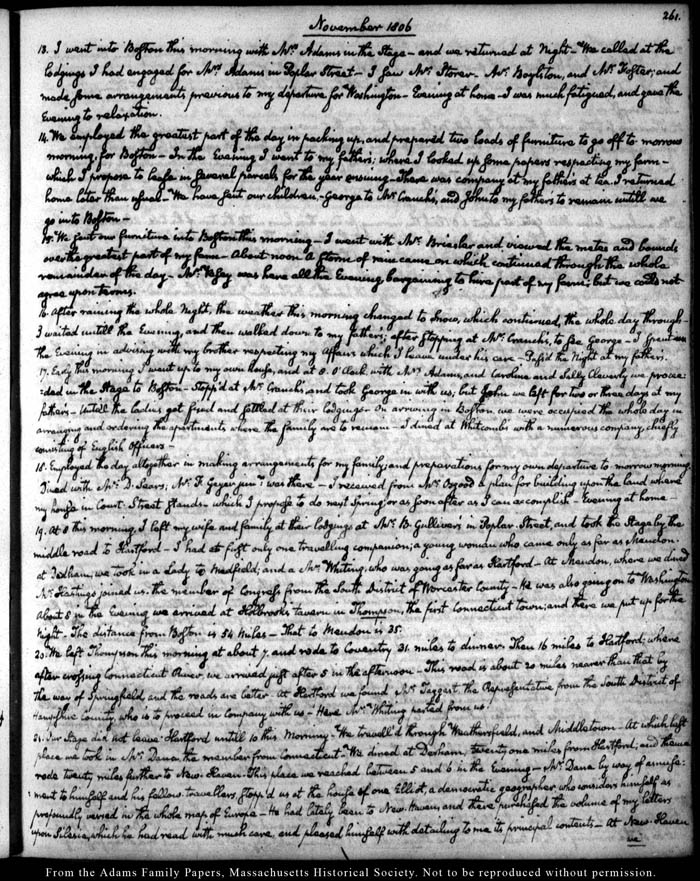 261.
November 1806
13. I went into Boston this morning with Mrs. Adams in the Stage - and we returned at Night - We called at the
lodgings I had engaged for Mrs Adams in Poplar Street - I saw Mr. Storer - Mr. Boylston, and Mr. Foster; and
made some arrangements previous to my departure for Washington - Evening at home - I was much fatigued, and gave the
Evening to relaxation.
14. We employed the greatest part of the day in packing up, and prepared two loads of furniture to go off to-morrow
morning, for Boston - In the Evening I went to my father's; where I looked up some papers respecting my farm -
which I propose to lease in several parcels for the year ensuing - There was company at my father's at tea. I returned
home later than usual - We have sent our children, George to Mr. Cranch's, and John to my father's to remain untill we
go into Boston -
15. We sent our furniture into Boston this morning - I went with Mr. Briesler and viewed the metes and bounds
over the greatest part of my farm - About noon a storm of rain came on which continued through the whole
remainder of the day - Mr. was here all the Evening, bargaining to hire part of my farm; but we could not
agree upon terms.
16. After raining the whole Night, the weather this morning changed to Snow, which continued, the whole day through -
I waited untill the Evening, and then walked down to my father's; after stopping at Mr. Cranch's, to see George - I spent
the Evening in advising with my brother respecting my Affairs which I leave under his care - Pass'd the Night at my father's.
17. Early this morning I went up to my own house, and at 9. O'Clock with Mrs. Adams, and Caroline and Sally Cleverly we procee-
:ded in the Stage to Boston - Stopp'd at Mr. Cranch's and took George in with us; but John we left for two or three days at my
father's - Untill the Ladies get fixed and settled at their lodgings - On arriving in Boston we were occupied the whole day in
arranging and ordering the apartments where the family are to remain - I dined at Whitcomb's with a numerous company, chiefly
consisting of English Officers -
18. Employed the day altogether in making arrangements for my family, and preparations for my own departure to-morrow morning.
Dined with Mr. D. Sears; Mr. F. Geyer junr. was there - I received from Mr. Osgood a plan for building upon the land where
my house in Court-Street stands - which I propose to do next Spring, or as soon after as I can accomplish - Evening at home -
19. At 8 this morning, I left my wife and family at their lodgings at Mr. B. Gulliver's in Poplar Street, and took the Stage by the
middle road to Hartford - I had at first only one travelling companion; a young woman who came only as far as Mendon.
at Dedham, we took in a Lady to Medfield; and a Mrs. Whiting, who was going as far as Hartford - At Mendon, where we dined
Mr. Hastings joined us. the member of Congress from the South District of Worcester County - He was also going on to Washington
About 8 in the Evening we arrived at Holbrooks tavern in Thompson, the first Connecticut town; and there we put up for the
Night - The distance from Boston is 54 miles - That to Mendon is 35.
20. We left Thompson this morning at about 7, and rode to Coventry 31 miles to dinner. Then 16 miles to Hartford; where
after crossing Connecticut River, we arrived just after 5 in the afternoon - This road is about 20 miles nearer than that by
the way of Springfield, and the roads are better - At Hartford we found Mr. Taggert, the Representative from the South District of
Hampshire County, who is to proceed in Company with us - Here Mrs. Whiting parted from us.
21. Our Stage did not leave Hartford untill 10 this Morning - We travell'd through Weathersfield, and Middletown - At which last
place we took in Mr. Dana, the member from Connecticut - We dined at Durham, twenty-one miles from Hartford, and thence
rode twenty miles further to New-Haven - This place we reached between 5 and 6 in the Evening - Mr. Dana by way of amuse-
ment to himself and his fellow-travellers, stopp'd us at the house of one Elliot, a democratic geographer, who considers himself as
profoundly versed in the whole map of Europe - He had lately been to New Haven, and there purchased the volume of my letters
upon Silesia, which he had read with much care, and pleased himself with detailing to me its principal contents - At New-Haven
we
From the Adams Family Papers, Massachusetts Historical Society. Not to be reproduced without permission.